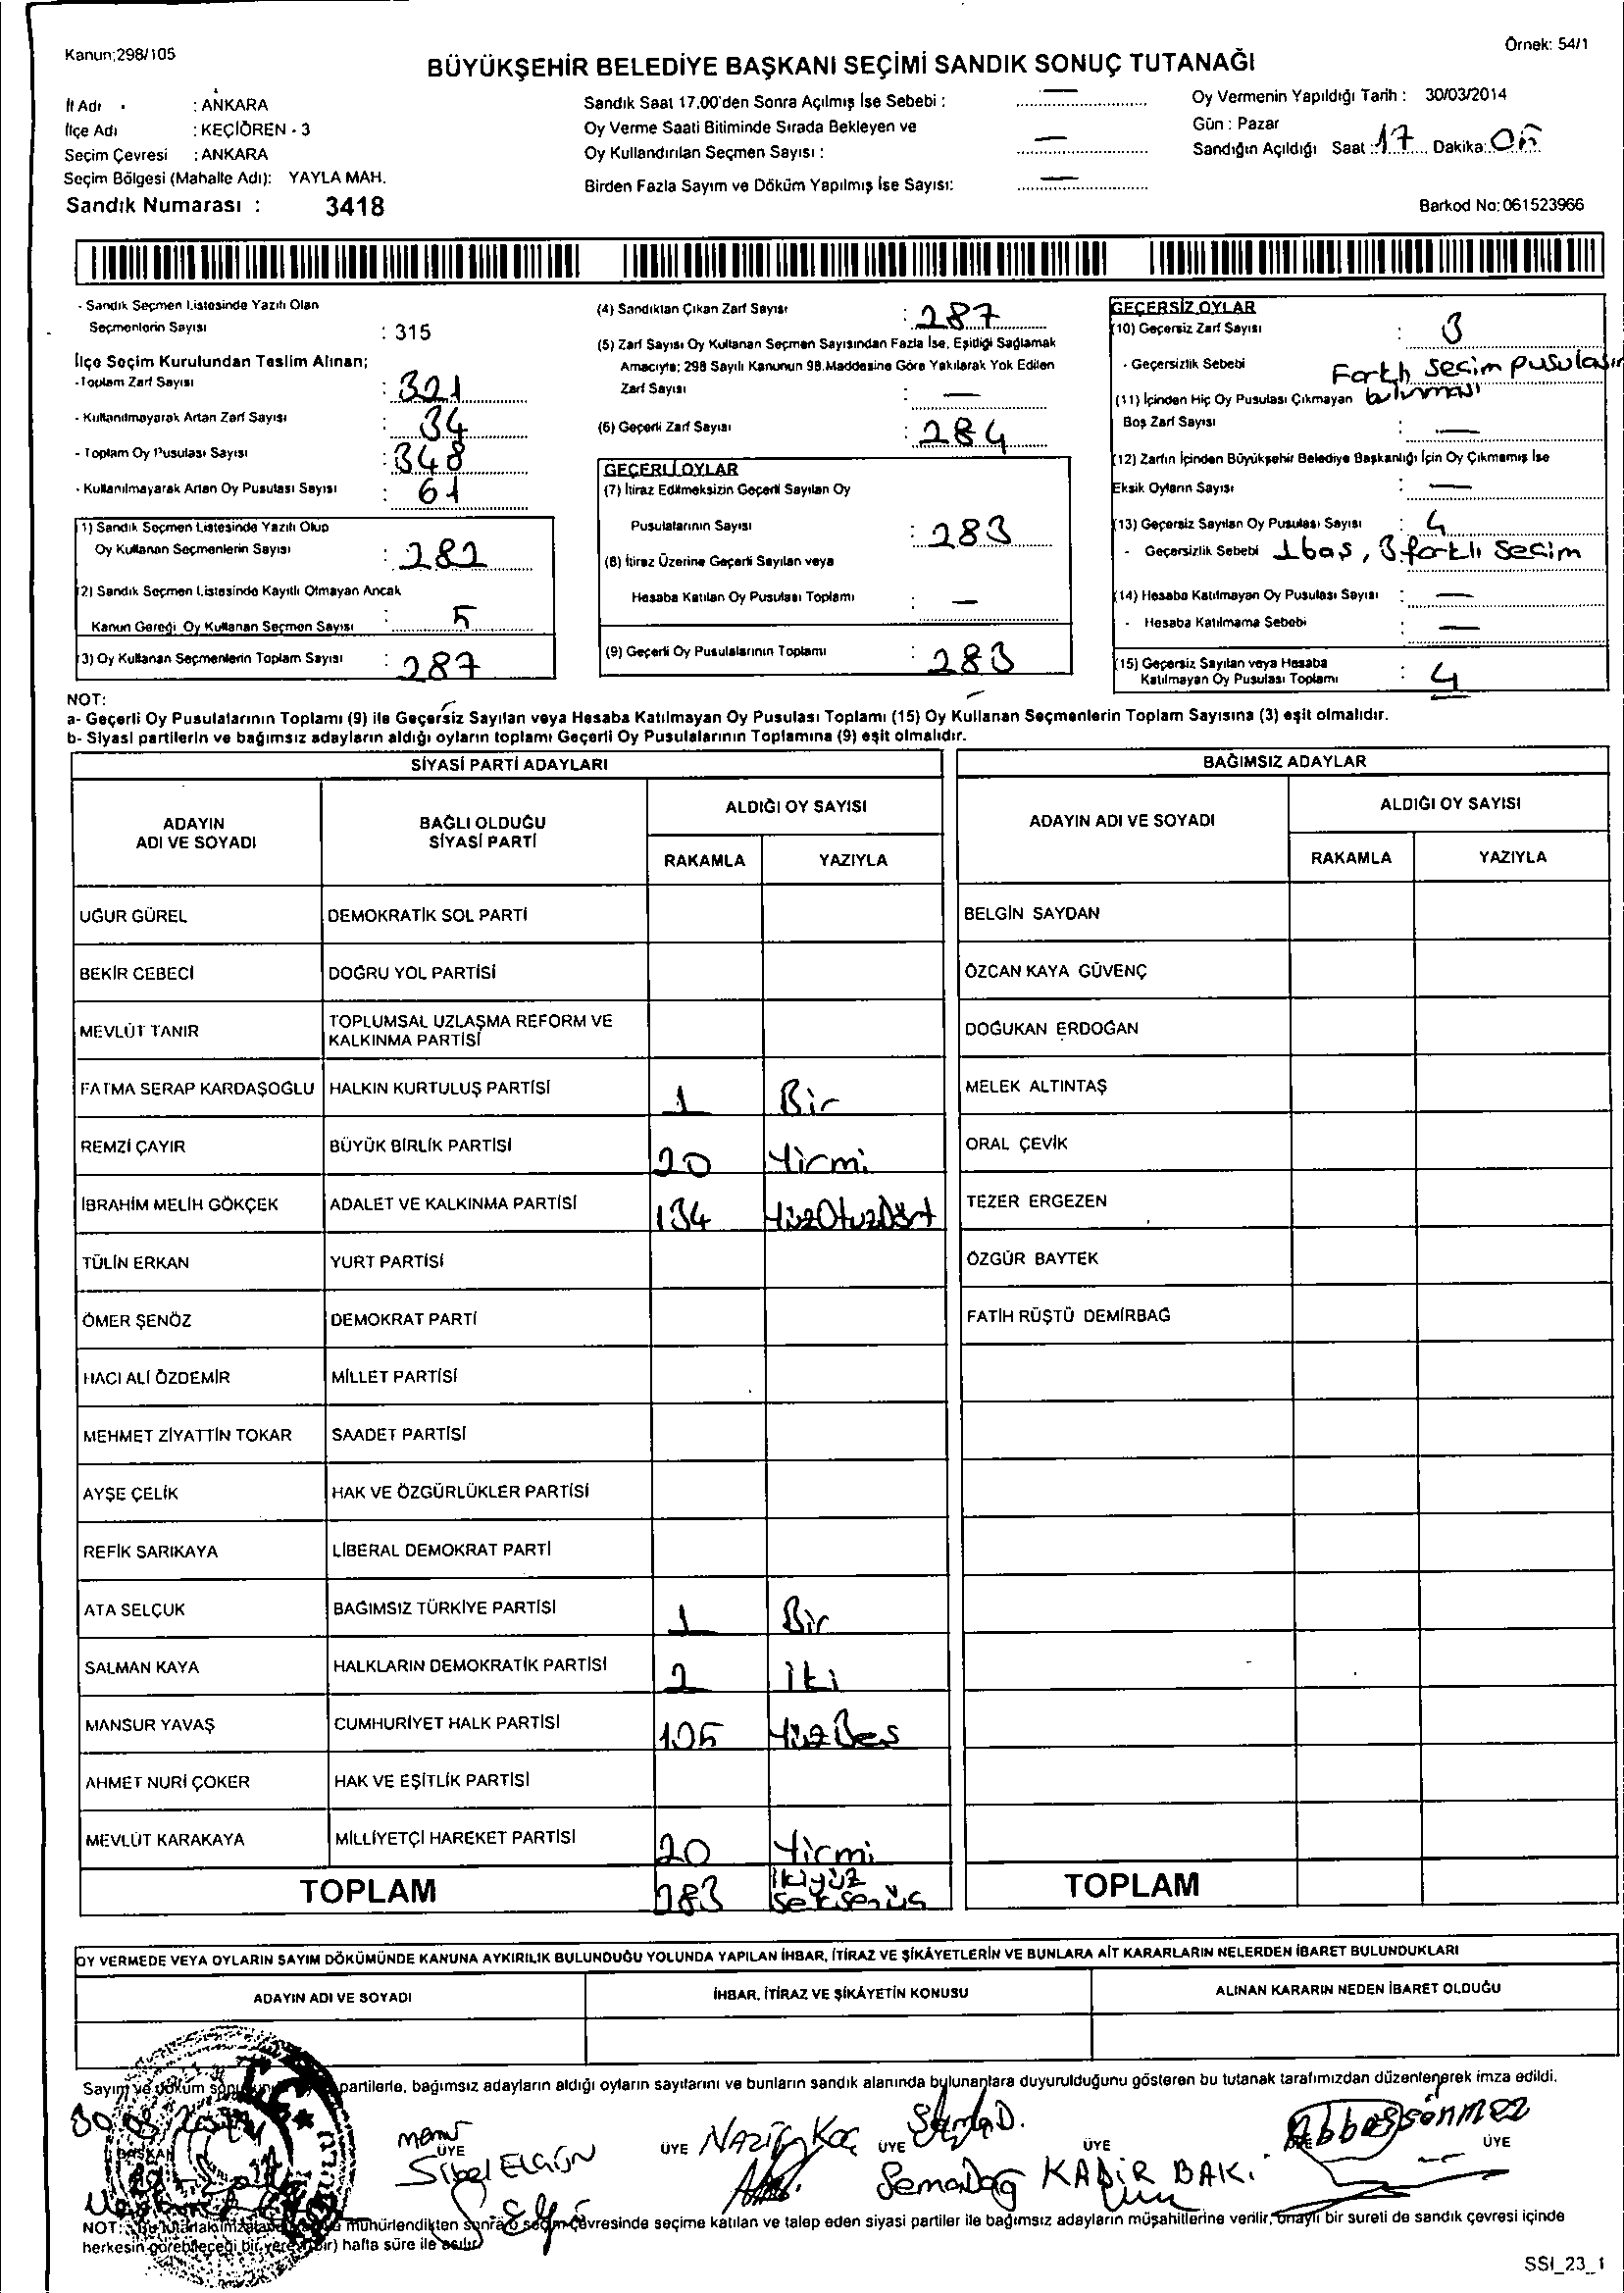 Kanun:298/105
Örnek: 54/1
BÜYÜKŞEHİR BELEDİYE BAŞKANI SEÇİMİ SANDIK SONUÇ TUTANAĞI
İl Adı : ANKARA
İlçe Adı : KEÇİÖREN - 3
Seçim Çevresi : ANKARA
Seçim Bölgesi (Mahalle Adı): YAYLA MAH.
Sandık Numarası : 3418
Sandık Saat 17.00'den Sonra Açılmış İse Sebebi : —
Oy Verme Saati Bitiminde Sırada Bekleyen ve
Oy Kullandırılan Seçmen Sayısı : —
Birden Fazla Sayım ve Döküm Yapılmış İse Sayısı: —
Oy Vermenin Yapıldığı Tarih : 30/03/2014
Gün : Pazar
Sandığın Açıldığı Saat : 17 Dakika: On
Barkod No: 061523966
- Sandık Seçmen Listesinde Yazılı Olan
Seçmenlerin Sayısı : 315
İlçe Seçim Kurulundan Teslim Alınan;
- Toplam Zarf Sayısı : 321
- Kullanılmayarak Artan Zarf Sayısı : 34
- Toplam Oy Pusulası Sayısı : 348
- Kullanılmayarak Artan Oy Pusulası Sayısı : 61
(1) Sandık Seçmen Listesinde Yazılı Olup
Oy Kullanan Seçmenlerin Sayısı : 282
(2) Sandık Seçmen Listesinde Kayıtlı Olmayan Ancak
Kanun Gereği Oy Kullanan Seçmen Sayısı : 5
(3) Oy Kullanan Seçmenlerin Toplam Sayısı : 287
(4) Sandıktan Çıkan Zarf Sayısı : 287
(5) Zarf Sayısı Oy Kullanan Seçmen Sayısından Fazla İse, Eşitliği Sağlamak
Amacıyla; 298 Sayılı Kanunun 98.Maddesine Göre Yakılarak Yok Edilen
Zarf Sayısı : —
(6) Geçerli Zarf Sayısı : 284
GEÇERLİ OYLAR
(7) İtiraz Edilmeksizin Geçerli Sayılan Oy
Pusulalarının Sayısı : 283
(8) İtiraz Üzerine Geçerli Sayılan veya
Hesaba Katılan Oy Pusulası Toplamı : —
(9) Geçerli Oy Pusulalarının Toplamı : 283
GEÇERSİZ OYLAR
(10) Geçersiz Zarf Sayısı : 3
- Geçersizlik Sebebi Farklı seçim pusulası
bulunması
(11) İçinden Hiç Oy Pusulası Çıkmayan
Boş Zarf Sayısı : —
(12) Zarfın İçinden Büyükşehir Belediye Başkanlığı İçin Oy Çıkmamış İse
Eksik Oyların Sayısı : —
(13) Geçersiz Sayılan Oy Pusulası Sayısı : 4
- Geçersizlik Sebebi 1 boş, 3 farklı secim
(14) Hesaba Katılmayan Oy Pusulası Sayısı : —
- Hesaba Katılmama Sebebi : —
(15) Geçersiz Sayılan veya Hesaba
Katılmayan Oy Pusulası Toplamı : 4
NOT:
a- Geçerli Oy Pusulalarının Toplamı (9) ile Geçersiz Sayılan veya Hesaba Katılmayan Oy Pusulası Toplamı (15) Oy Kullanan Seçmenlerin Toplam Sayısına (3) eşit olmalıdır.
b- Siyasi partilerin ve bağımsız adayların aldığı oyların toplamı Geçerli Oy Pusulalarının Toplamına (9) eşit olmalıdır.
SİYASİ PARTİ ADAYLARI
ADAYIN ADI VE SOYADI
BAĞLI OLDUĞU SİYASİ PARTİ
ALDIĞI OY SAYISI
RAKAMLA YAZIYLA
UĞUR GÜREL DEMOKRATİK SOL PARTİ
BEKİR CEBECİ DOĞRU YOL PARTİSİ
MEVLÜT TANIR TOPLUMSAL UZLAŞMA REFORM VE KALKINMA PARTİSİ
FATMA SERAP KARDAŞOĞLU HALKIN KURTULUŞ PARTİSİ 1 Bir
REMZİ ÇAYIR BÜYÜK BİRLİK PARTİSİ 20 Yirmi
İBRAHİM MELİH GÖKÇEK ADALET VE KALKINMA PARTİSİ 134 YüzOtuzDört
TÜLİN ERKAN YURT PARTİSİ
ÖMER ŞENÖZ DEMOKRAT PARTİ
HACI ALİ ÖZDEMİR MİLLET PARTİSİ
MEHMET ZİYATTİN TOKAR SAADET PARTİSİ
AYŞE ÇELİK HAK VE ÖZGÜRLÜKLER PARTİSİ
REFİK SARIKAYA LİBERAL DEMOKRAT PARTİ
ATA SELÇUK BAĞIMSIZ TÜRKİYE PARTİSİ 1 Bir
SALMAN KAYA HALKLARIN DEMOKRATİK PARTİSİ 2 iki
MANSUR YAVAŞ CUMHURİYET HALK PARTİSİ 105 YüzBes
AHMET NURİ ÇOKER HAK VE EŞİTLİK PARTİSİ
MEVLÜT KARAKAYA MİLLİYETÇİ HAREKET PARTİSİ 20 Yirmi
TOPLAM 283 ikiyüz seksenüç
BAĞIMSIZ ADAYLAR
ADAYIN ADI VE SOYADI
ALDIĞI OY SAYISI
RAKAMLA YAZIYLA
BELGİN SAYDAN
ÖZCAN KAYA GÜVENÇ
DOĞUKAN ERDOĞAN
MELEK ALTINTAŞ
ORAL ÇEVİK
TEZER ERGEZEN
ÖZGÜR BAYTEK
FATİH RÜŞTÜ DEMİRBAĞ
TOPLAM
OY VERMEDE VEYA OYLARIN SAYIM DÖKÜMÜNDE KANUNA AYKIRILIK BULUNDUĞU YOLUNDA YAPILAN İHBAR, İTİRAZ VE ŞİKÂYETLERİN VE BUNLARA AİT KARARLARIN NELERDEN İBARET BULUNDUKLARI
ADAYIN ADI VE SOYADI
İHBAR, İTİRAZ VE ŞİKÂYETİN KONUSU
ALINAN KARARIN NEDEN İBARET OLDUĞU
Sayım ve döküm partilerle, bağımsız adayların aldığı oyların sayılarını ve bunların sandık alanında bulunanlara duyurulduğunu gösteren bu tutanak tarafımızdan düzenlenerek imza edildi.
BAŞKAN
ÜYE Sibel ELGÜN
ÜYE NAZİFE KOÇ
ÜYE Sema Dağ
ÜYE KADİR BAKI
ÜYE Abbas Sönmez
NOT: mühürlendikten sonra o seçim çevresinde seçime katılan ve talep eden siyasi partiler ile bağımsız adayların müşahitlerine verilir, onaylı bir sureti de sandık çevresi içinde
herkesin görebileceği bir yere (bir) hafta süre ile asılır.
SSI_23_1